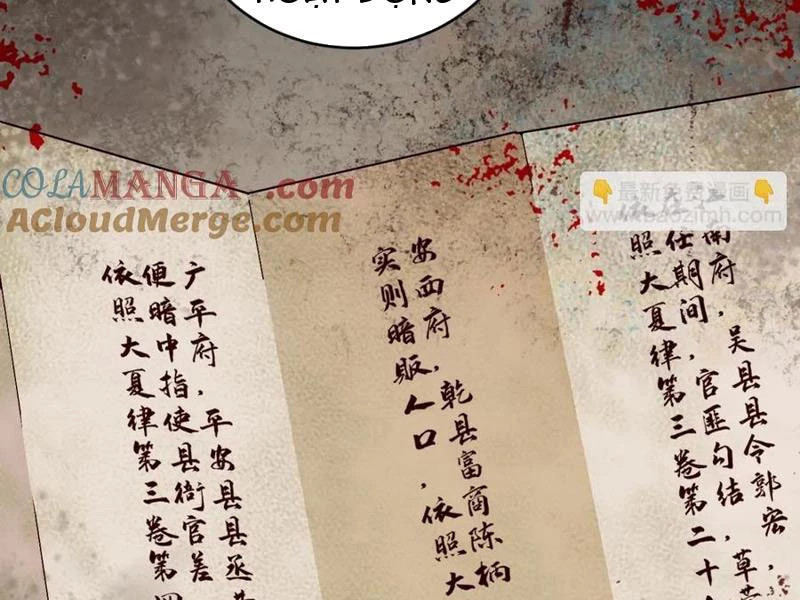 COLAMANGA.com
ACloudMerge.com
👇最新免费漫画👇
www.baozimh.com
广平府，平安县县丞
便暗中指使县衙官差
依照大夏律第三卷第
安西府，乾县富商陈柄
实则暗贩人口，依照大
南府，吴县县令郭宏，草
任期间，官匪勾结，
依照大夏律第三卷第二十